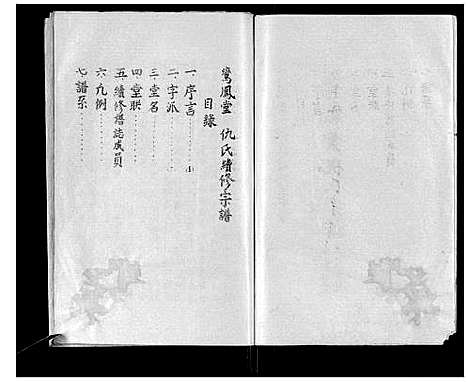 鸞鳳堂 仇氏續修宗譜
目錄
一.序言………(1)
二.字派………
三.堂名………
四.堂联………
五.續修譜誌成員
六.凡例………
七.譜系………